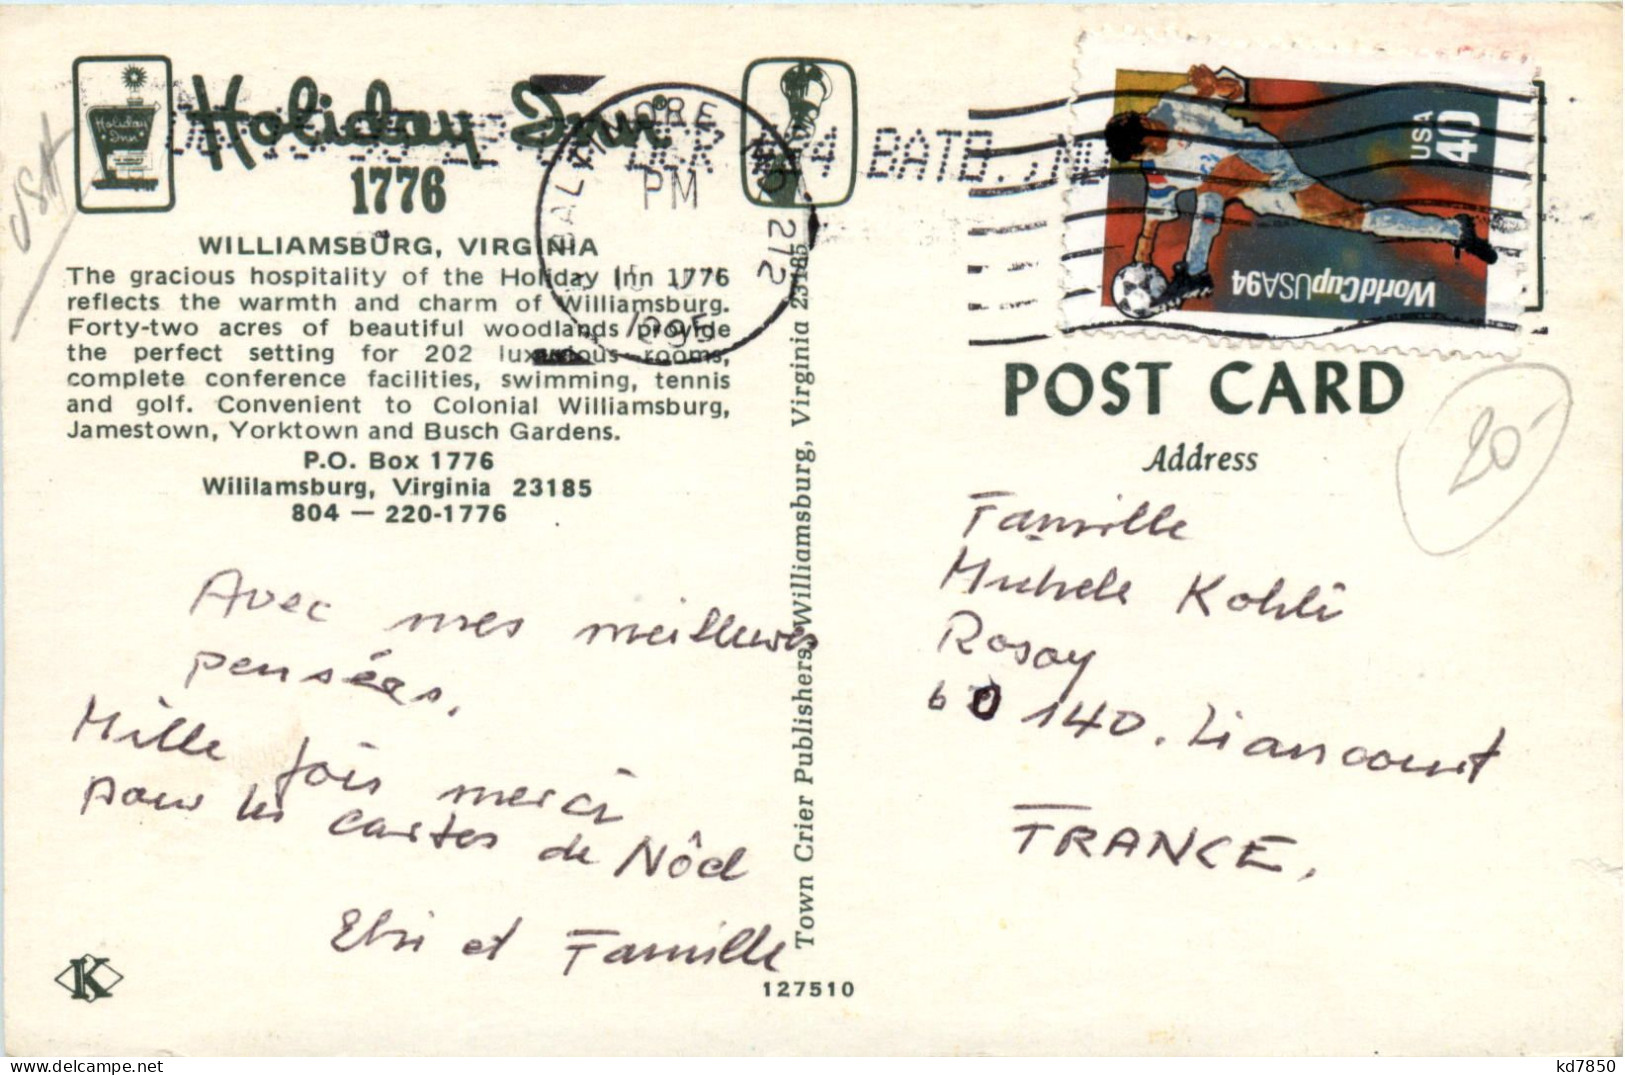 Holiday Inn®
1776
WILLIAMSBURG, VIRGINIA
The gracious hospitality of the Holiday Inn 1776
reflects the warmth and charm of Williamsburg.
Forty-two acres of beautiful woodlands provide
the perfect setting for 202 luxurious rooms,
complete conference facilities, swimming, tennis
and golf. Convenient to Colonial Williamsburg,
Jamestown, Yorktown and Busch Gardens.
P.O. Box 1776
Wililamsburg, Virginia 23185
804 — 220-1776
Avec mes meilleures
pensées.
Mille fois merci
pour les cartes de Nôel
Elsi et Famille
K
Town Crier Publishers, Williamsburg, Virginia 23185
127510
USA
BALTIMORE MD 212
PM
1995
USA
40
WorldCupUSA94
POST CARD
Address
20
Famille
Michele Kohli
Rosoy
60 140. Liancourt
FRANCE.
kd7850